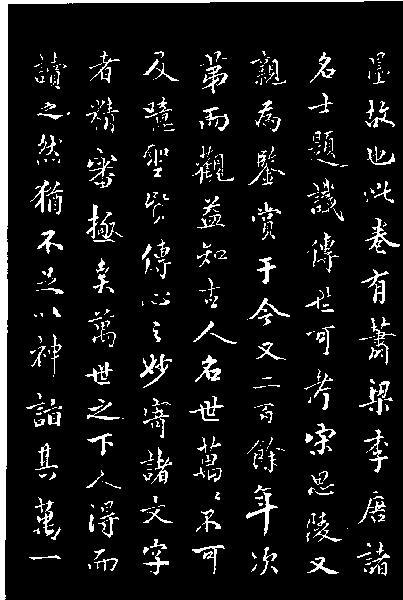 墨故也此卷有蕭梁李唐諸
名士題識傳世可考宋思陵又
親為鑒賞于今又二百餘年次
第而觀益知古人名世萬萬不可
及驗聖賢傳心之妙寄諸文字
者精審極矣萬世之下人得而
讀之然猶不足以神詣其萬一